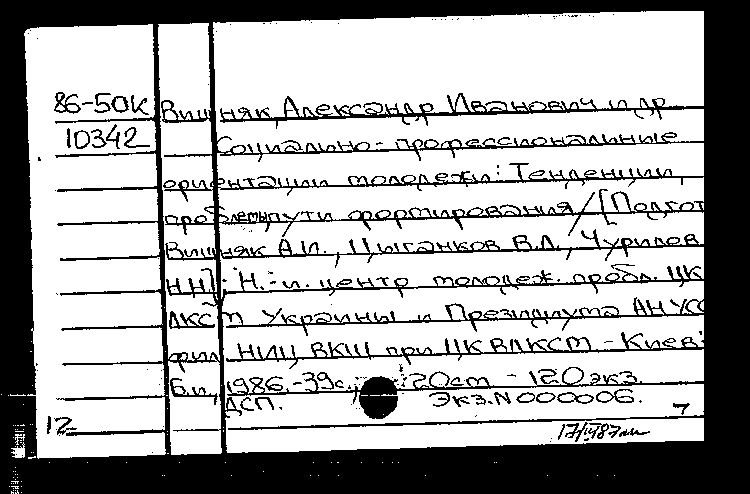 86-50К Вишняк, Александр Иванович и др
10342 Социально-профессиональные
ориентации молодежи: Тенденции,
проблемы, пути формирования / [Подгот
Вишняк А.И., Цыганков В.Л., Чурилов
Н.Н.]; Н.-и. центр молодеж. пробл. ЦК
ЛКСМ Украины и Президиума АН УСС
фил. НИЦ ВКШ при ЦК ВЛКСМ - Киев:
Б.и., 1986.-39с.; 20см - 120экз.
ДСП. Экз.N000006.
12 7